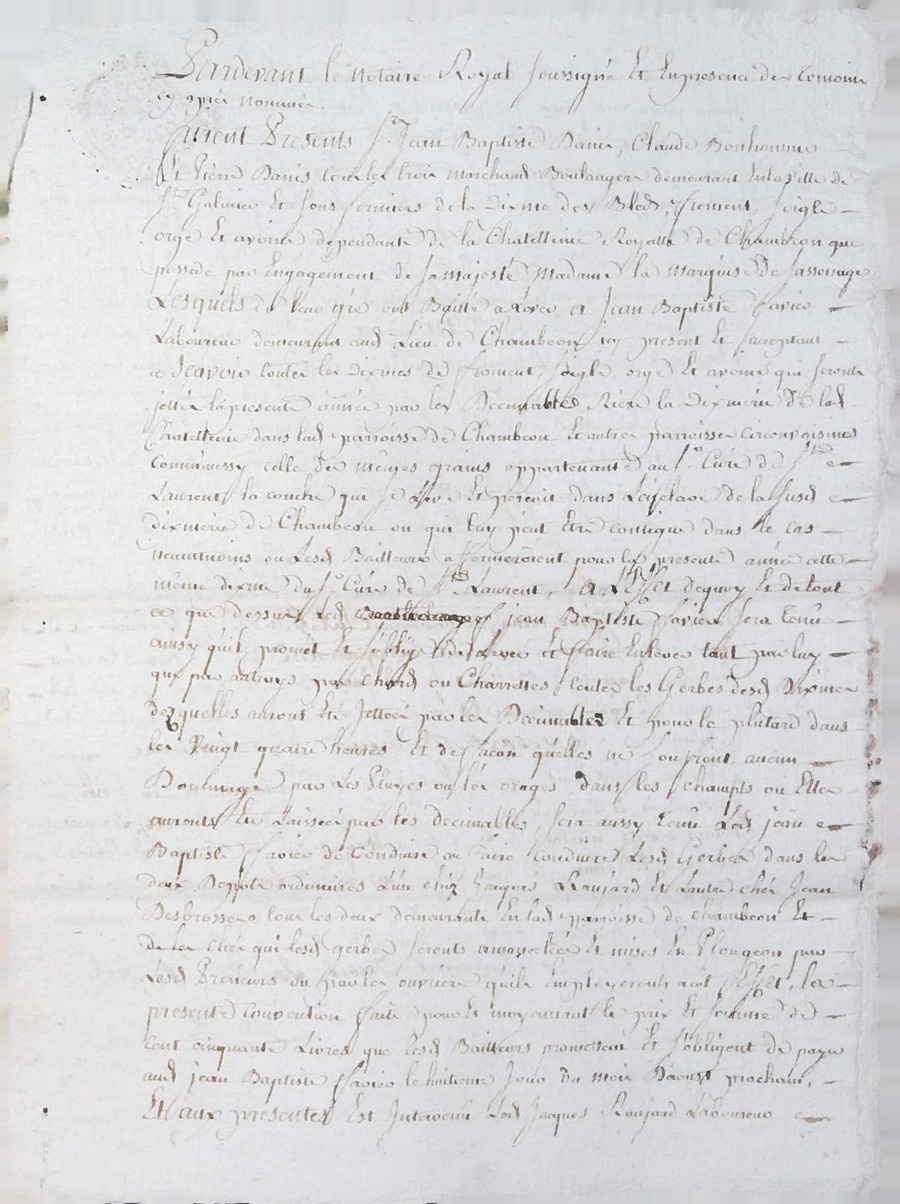 Pardevant le Notaire Royal soussigné Et En presence des temoins
cy après nommés
furent Presents Sr. Jean Baptiste Danis, Claude Bonhomme
Et Pierre Danis tous les trois marchands Boulangers demeurant En la ville de
St. Galmier Et sous fermiers de la Dixme des Bleds, froment, seigle
orge Et avoine dependante de la Chatellenie Royalle de Chambeon que
possede par Engagement de sa majesté Madame la marquise de Sassenage
Lesquels de leur gré ont Baillé a Lever a Jean Baptiste favier
Laboureur demeurant aud. Lieu de Chambeon icy present Et acceptant
a sçavoir toutes les dixmes de froment, seigle orge Et avoine qui seront
jettée la presente année par les Decimables Riere la Dixmerie de lad.
Chatellenie dans lad. parroisse de Chambeon Et autres parroisses circonvoisines
comme aussy celle de mêmes grains appartenante au Sr. Curé de St.
Laurent la conche qui se Leve Et perçoit dans L'Esclave de la susd.
dixmerie de Chambeon ou qui luy peut Etre contigue dans le cas
neantmoins ou Lesd. Bailleurs affermeroient pour la presente année cette
même dixme du Sr. Curé de St. Laurent, A L'Effet de quoy Et de tout
ce que dessus Led. jean Baptiste favier sera tenu
ainsy qu'il promet Et s'oblige de Lever et faire Enlever tant par luy
que par autruy par chars ou Charrettes toutes les Gerbes desd. Dixmes
desquelles auront Eté Jettées par les Decimables Et pour le plutard dans
les Vingt quatre heures Et de façon qu'elles ne souffront aucun
Dommage par Les Pluyes ou les orages dans les champts ou Elles
auronts Eté Laissées par les decimables, sera aussy tenu Led. jean
Baptiste favier de Conduire ou faire Conduire Lesd. Gerbes dans les
deux Depots ordinaires L'un chez Jacques Roujard Et L'autre chés Jean
Desbrosses tous les deux demeurants En lad. parroisse de Chambeon Et
de la chés qui lesd. gerbes seronts amonclées Et mises En Plongeon par
Lesd. Preneurs ou par les ouvriers qu'ils Employeronts a cet Effet, la
presente Convention faite pour Et moyennant le prix Et somme de
cent cinquante Livres que lesd. Bailleurs promettent Et s'obligent de payer
aud. jean Baptiste favier le huitieme Jour du mois D'aoust prochain,
Et aux presentes Est Intervenu Led. Jacques Roujard Laboureur